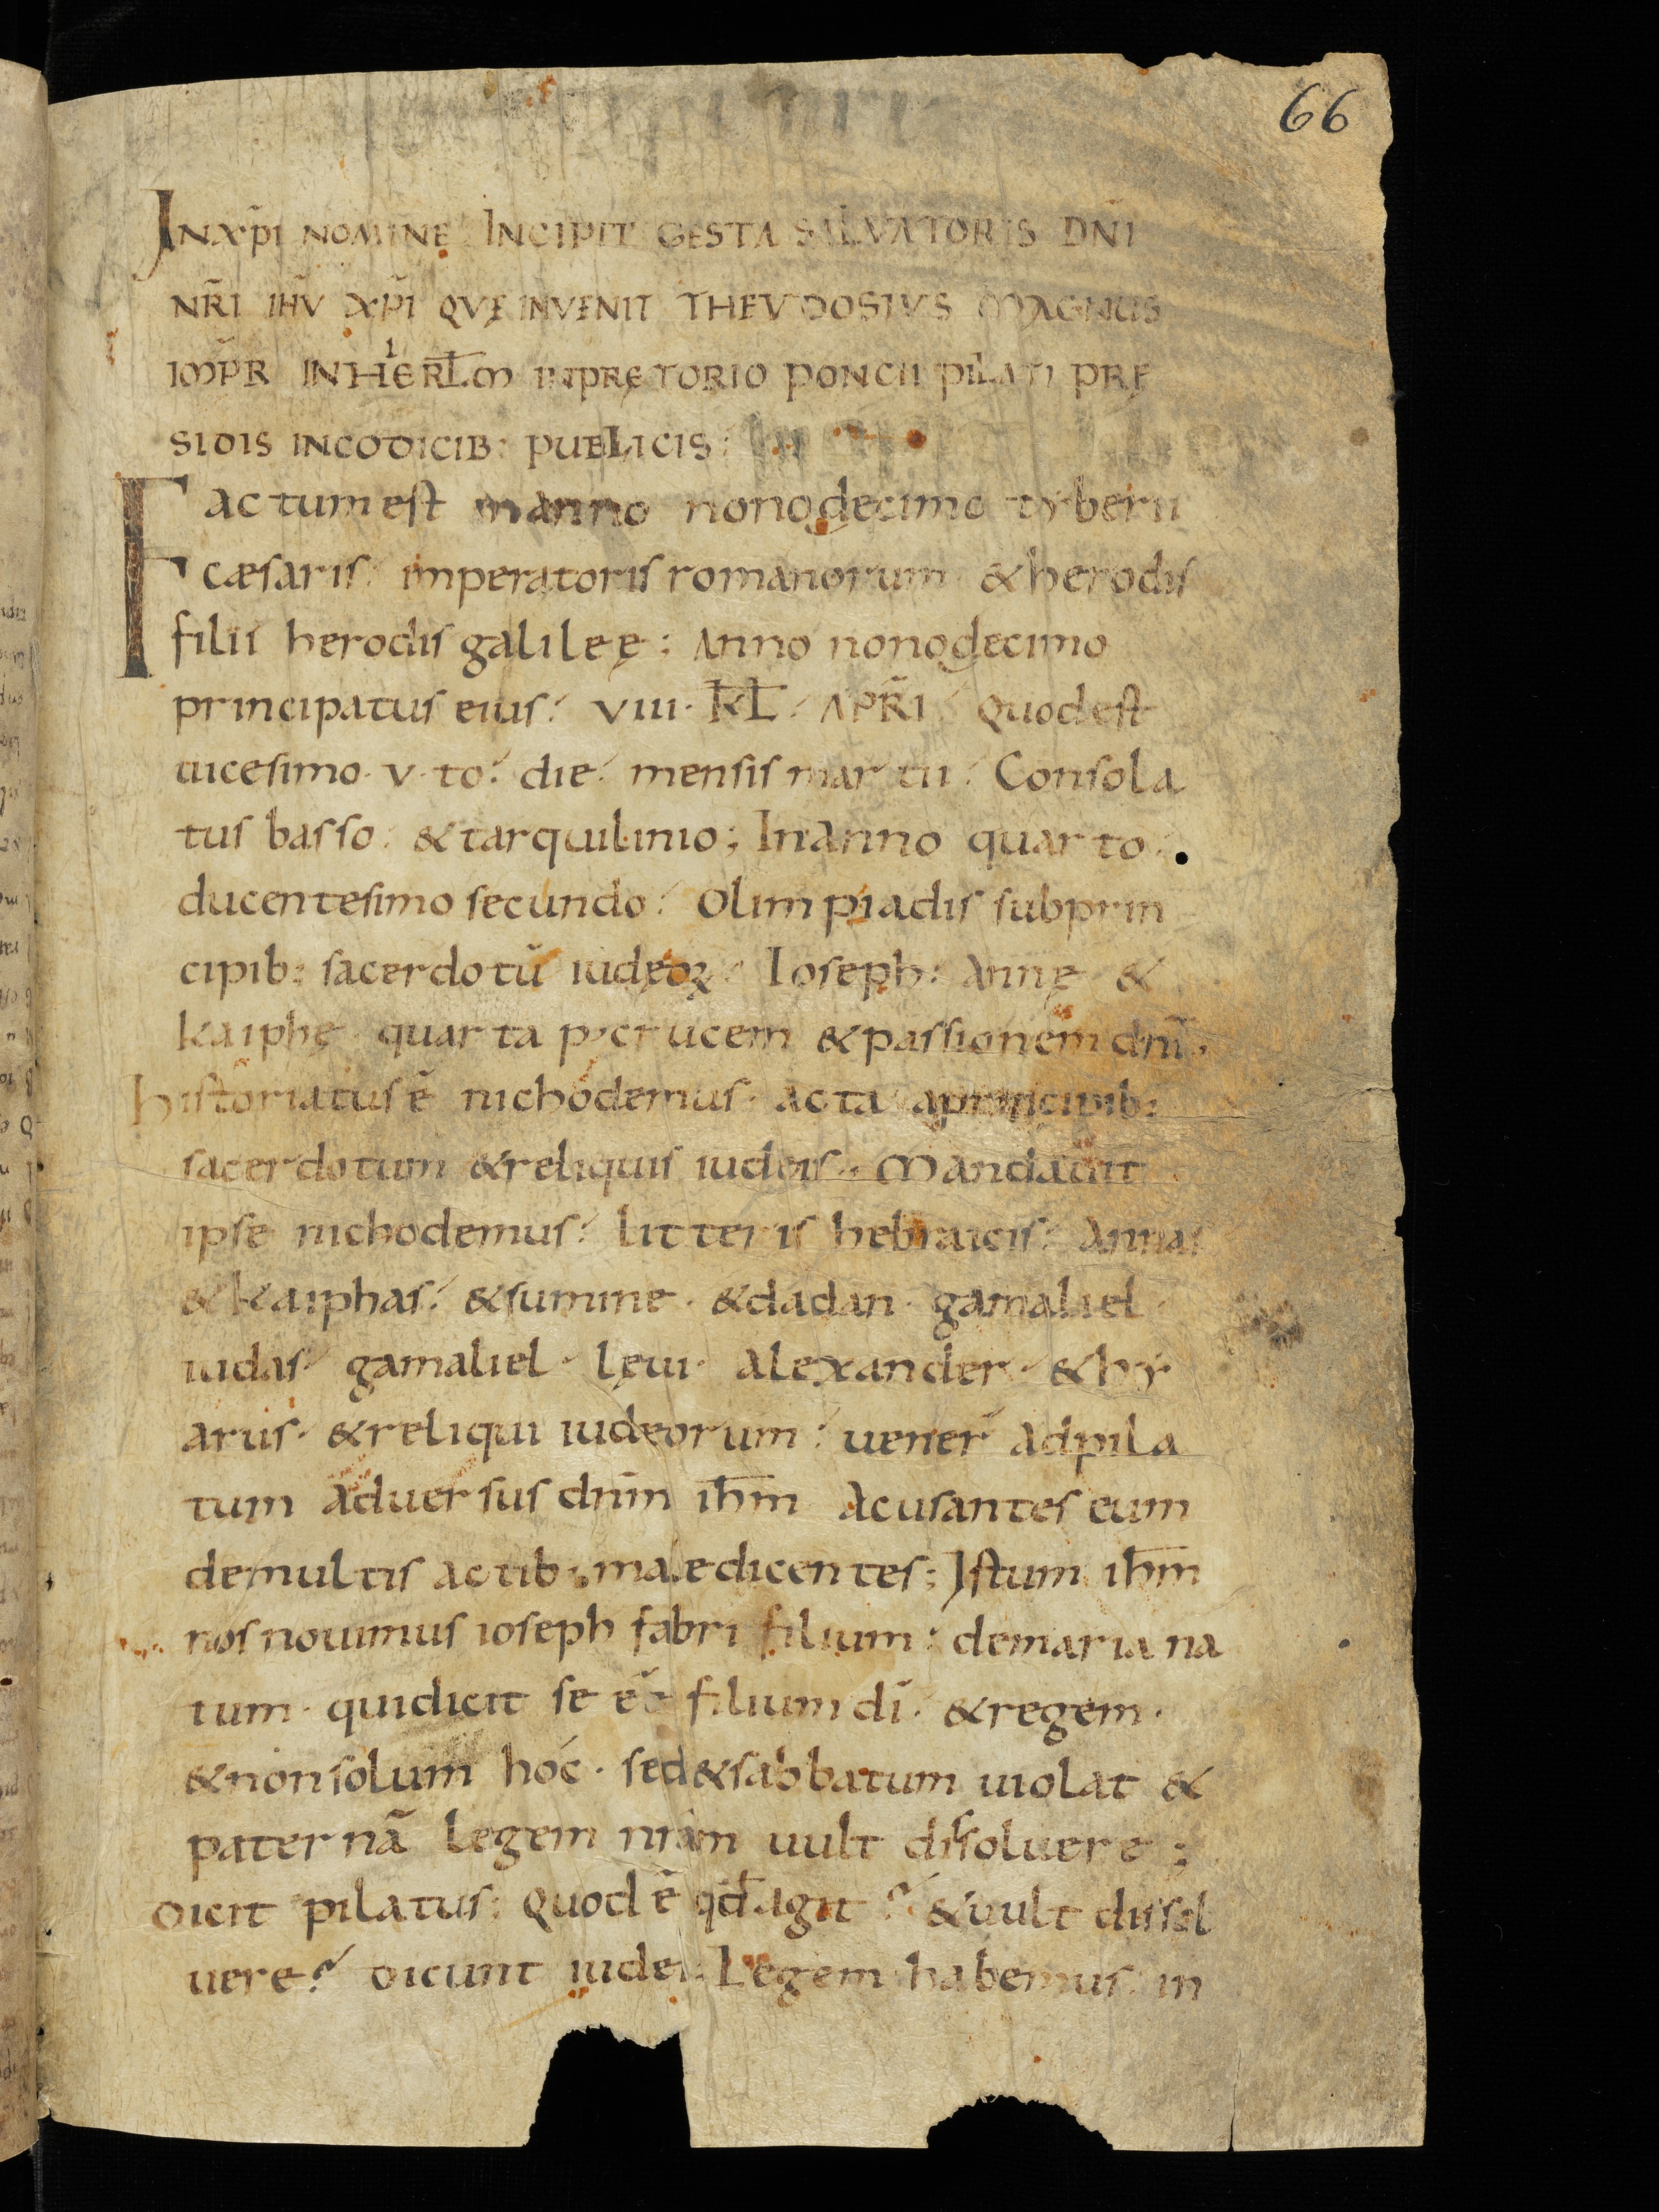 66
INXP̃I NOMINE INCIPIT GESTA SALVATORIS DÑI
NR̃I IHṼ XP̃I QVĘ INVENIT THEVDOSIVS MAGNUS
IMP̃R INHIERL̄M INPRĘTORIO PONCII PILATI PRĘ
SIDIS INCODICIB: PUBLICIS:
Factumest inanno nonodecimo tyberii
cæsaris. imperatoris romanorum &herodis
filii herodis galileę; Anno nonodecimo
principatus eius. VIII. K̄L. APR̃I. Quodest
uicesimo. v. to. die. mensis martii. Consola
tus basso. &tarquilinio; Inanno quarto.
ducentesimo secundo. Olimpiadis subprin
cipib: sacerdotū iudęoꝝ. Ioseph. Annę &
kaiphę. quarta p; crucem &passionem dn̄i.
historiatus ē nichodemus. acta aprincipib:
sacerdotum &reliquis iudeis. Mandauit
ipse nichodemus. litteris hebraicis. Annas
&kaiphas. &summe. &dadan. gamaliel.
iudas. gamaliel. lęui. alexander. &hy
arus. &reliqui iudeorum. uener̄ adpila
tum aduersus dn̄m ih̄m acusantes eum
demultis actib; maledicentes; Istum ih̄m
nos nouimus ioseph fabri filium: demaria na
tum. quidicit se eē filium dī. &regem.
&nonsolum hóc. sed&sabbatum uiolat &
paternā legem nrām uult dissoluere;
Dicit pilatus: Quod ē qd̄ agit? &uult dissol
uere? Dicunt iudei. Legem habemus. in